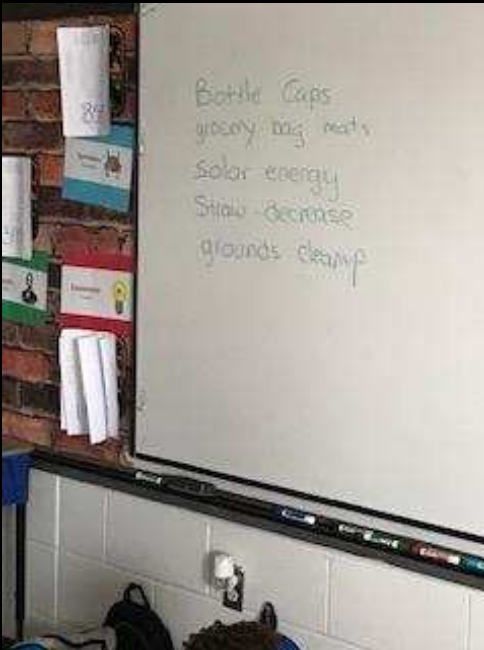 Bottle Caps
grocery bag mats
solar energy
Straw decrease
grounds cleanup